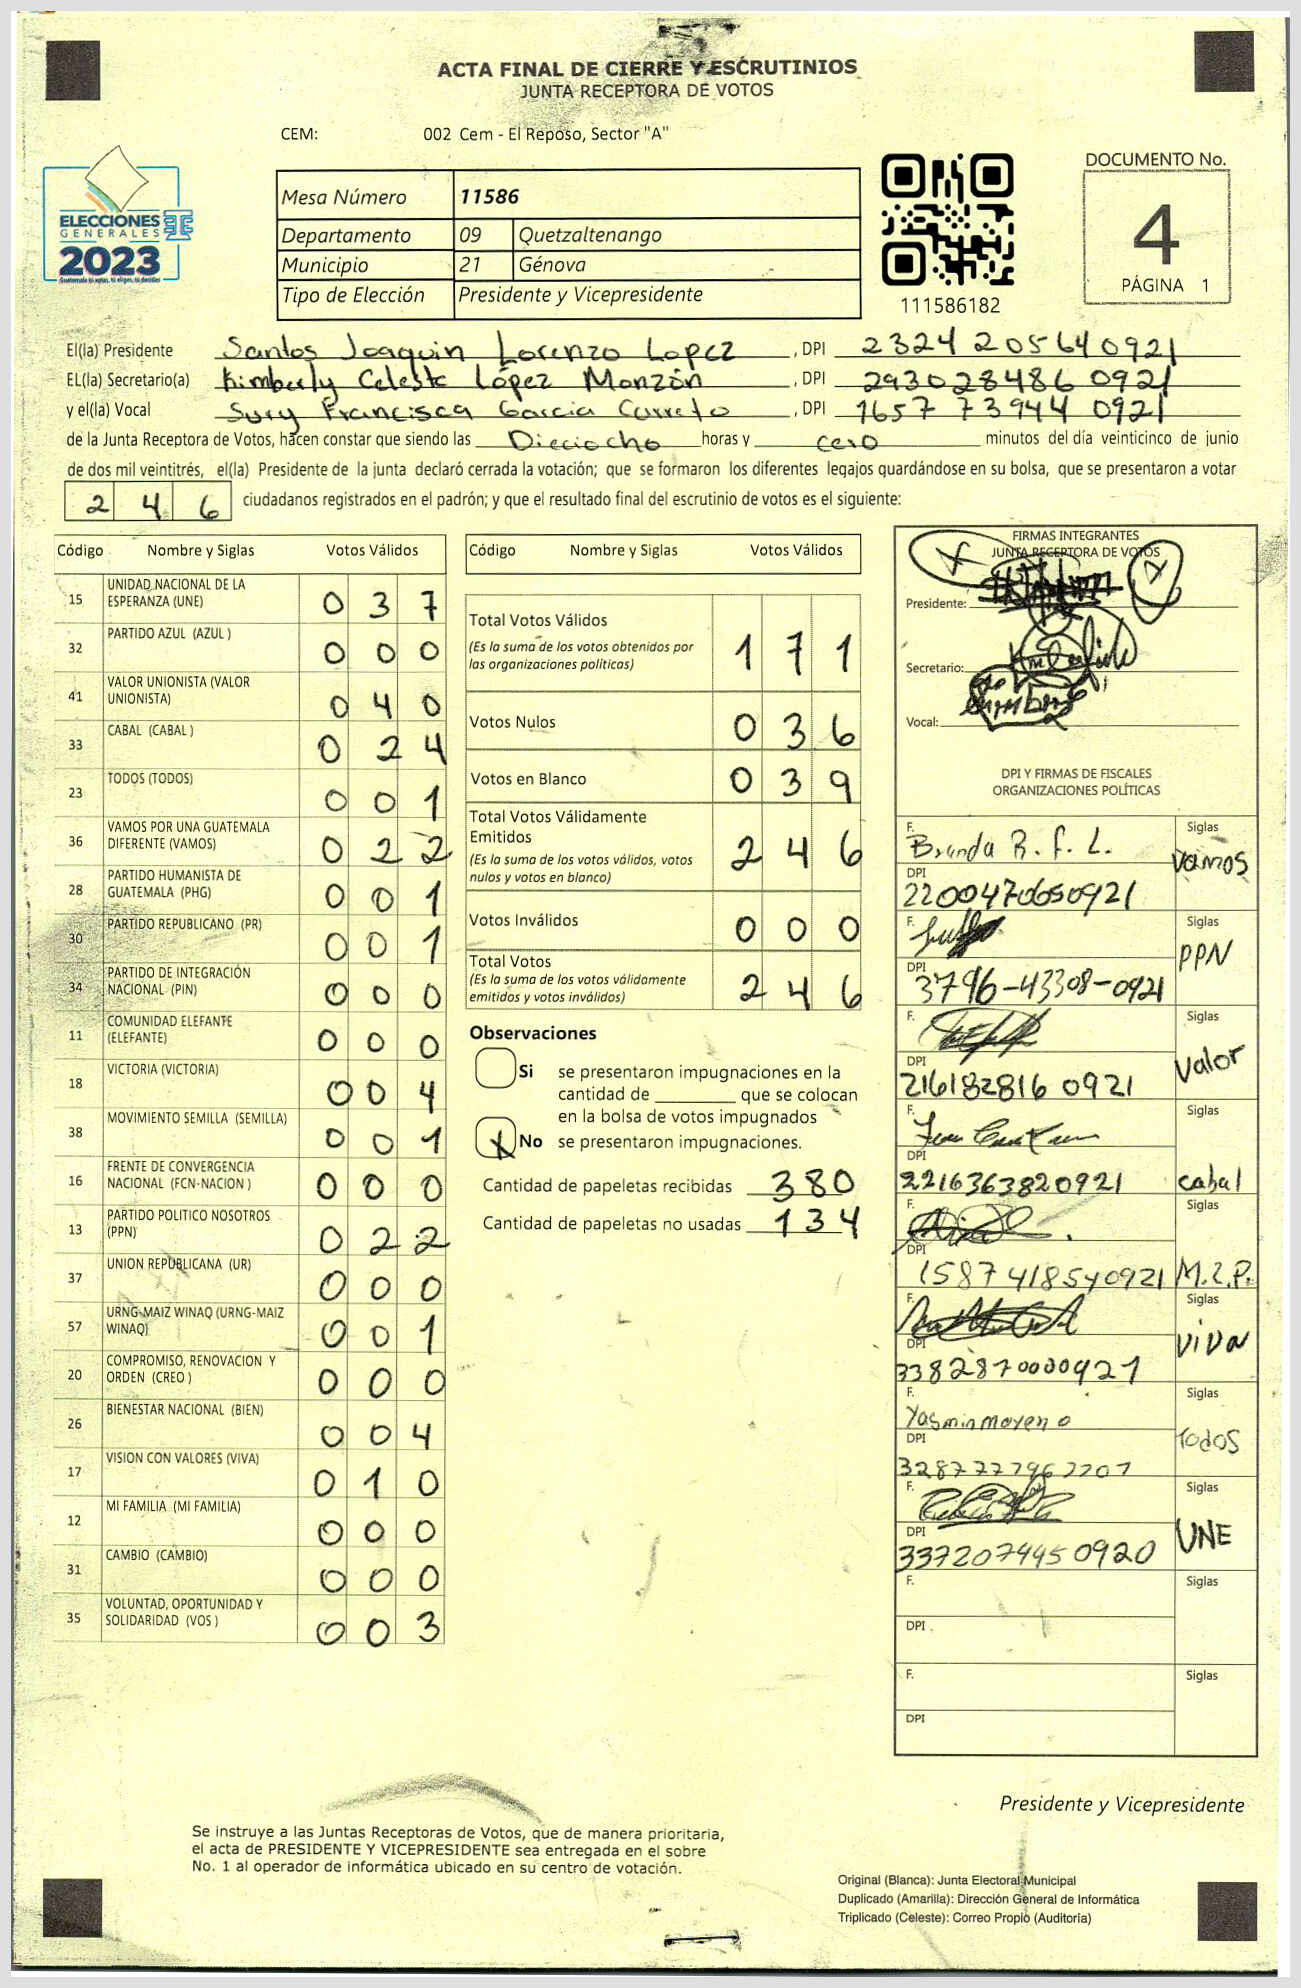 ACTA FINAL DE CIERRE Y ESCRUTINIOS
JUNTA RECEPTORA DE VOTOS
CEM: 002 Cem - El Reposo, Sector "A"
ELECCIONES
GENERALES
2023
Mesa Número 11586
Departamento 09 Quetzaltenango
Municipio 21 Génova
Tipo de Elección Presidente y Vicepresidente
111586182
DOCUMENTO No.
4
PÁGINA 1
El(la) Presidente Santos Joaquin Lorenzo Lopez , DPI 2324 20564 0921
EL(la) Secretario(a) Kimberly Celeste López Monzón , DPI 293028486 0921
y el(la) Vocal Sury Francisca Garcia Carreto , DPI 1657 73944 0921
de la Junta Receptora de Votos, hacen constar que siendo las Dieciocho horas y cero minutos del día veinticinco de junio
de dos mil veintitrés, el(la) Presidente de la junta declaró cerrada la votación; que se formaron los diferentes legajos guardándose en su bolsa, que se presentaron a votar
2 4 6 ciudadanos registrados en el padrón; y que el resultado final del escrutinio de votos es el siguiente:
Código Nombre y Siglas Votos Válidos
15 UNIDAD NACIONAL DE LA
ESPERANZA (UNE) 0 3 7
32 PARTIDO AZUL (AZUL ) 0 0 0
41 VALOR UNIONISTA (VALOR
UNIONISTA) 0 4 0
33 CABAL (CABAL ) 0 2 4
23 TODOS (TODOS) 0 0 1
36 VAMOS POR UNA GUATEMALA
DIFERENTE (VAMOS) 0 2 2
28 PARTIDO HUMANISTA DE
GUATEMALA (PHG) 0 0 1
30 PARTIDO REPUBLICANO (PR) 0 0 1
34 PARTIDO DE INTEGRACIÓN
NACIONAL (PIN) 0 0 0
11 COMUNIDAD ELEFANTE
(ELEFANTE) 0 0 0
18 VICTORIA (VICTORIA) 0 0 4
38 MOVIMIENTO SEMILLA (SEMILLA) 0 0 1
16 FRENTE DE CONVERGENCIA
NACIONAL (FCN-NACION ) 0 0 0
13 PARTIDO POLITICO NOSOTROS
(PPN) 0 2 2
37 UNION REPUBLICANA (UR) 0 0 0
57 URNG-MAIZ WINAQ (URNG-MAIZ
WINAQ) 0 0 1
20 COMPROMISO, RENOVACION Y
ORDEN (CREO ) 0 0 0
26 BIENESTAR NACIONAL (BIEN) 0 0 4
17 VISION CON VALORES (VIVA) 0 1 0
12 MI FAMILIA (MI FAMILIA) 0 0 0
31 CAMBIO (CAMBIO) 0 0 0
35 VOLUNTAD, OPORTUNIDAD Y
SOLIDARIDAD (VOS ) 0 0 3
Código Nombre y Siglas Votos Válidos
Total Votos Válidos
(Es la suma de los votos obtenidos por
las organizaciones políticas) 1 7 1
Votos Nulos 0 3 6
Votos en Blanco 0 3 9
Total Votos Válidamente
Emitidos
(Es la suma de los votos válidos, votos
nulos y votos en blanco) 2 4 6
Votos Inválidos 0 0 0
Total Votos
(Es la suma de los votos válidamente
emitidos y votos inválidos) 2 4 6
Observaciones
Si se presentaron impugnaciones en la
cantidad de ________ que se colocan
en la bolsa de votos impugnados
X No se presentaron impugnaciones.
Cantidad de papeletas recibidas 380
Cantidad de papeletas no usadas 134
FIRMAS INTEGRANTES
JUNTA RECEPTORA DE VOTOS
Presidente:
Secretario:
Vocal:
DPI Y FIRMAS DE FISCALES
ORGANIZACIONES POLÍTICAS
F. Brenda R. F. L. Siglas
DPI Vamos
2200470650921
F. Siglas
DPI PPN
3796-43308-0921
F. Siglas
DPI Valor
216182816 0921
F. Siglas
DPI
2216363820921 cabal
F. Siglas
DPI
1587418540921 M.L.P.
F. Siglas
DPI VIVA
3382870000921
F. Yasmin moreno Siglas
DPI Todos
F. Siglas
DPI UNE
3372079450920
F. Siglas
DPI
F. Siglas
DPI
Presidente y Vicepresidente
Se instruye a las Juntas Receptoras de Votos, que de manera prioritaria,
el acta de PRESIDENTE Y VICEPRESIDENTE sea entregada en el sobre
No. 1 al operador de informática ubicado en su centro de votación.
Original (Blanca): Junta Electoral Municipal
Duplicado (Amarilla): Dirección General de Informática
Triplicado (Celeste): Correo Propio (Auditoría)